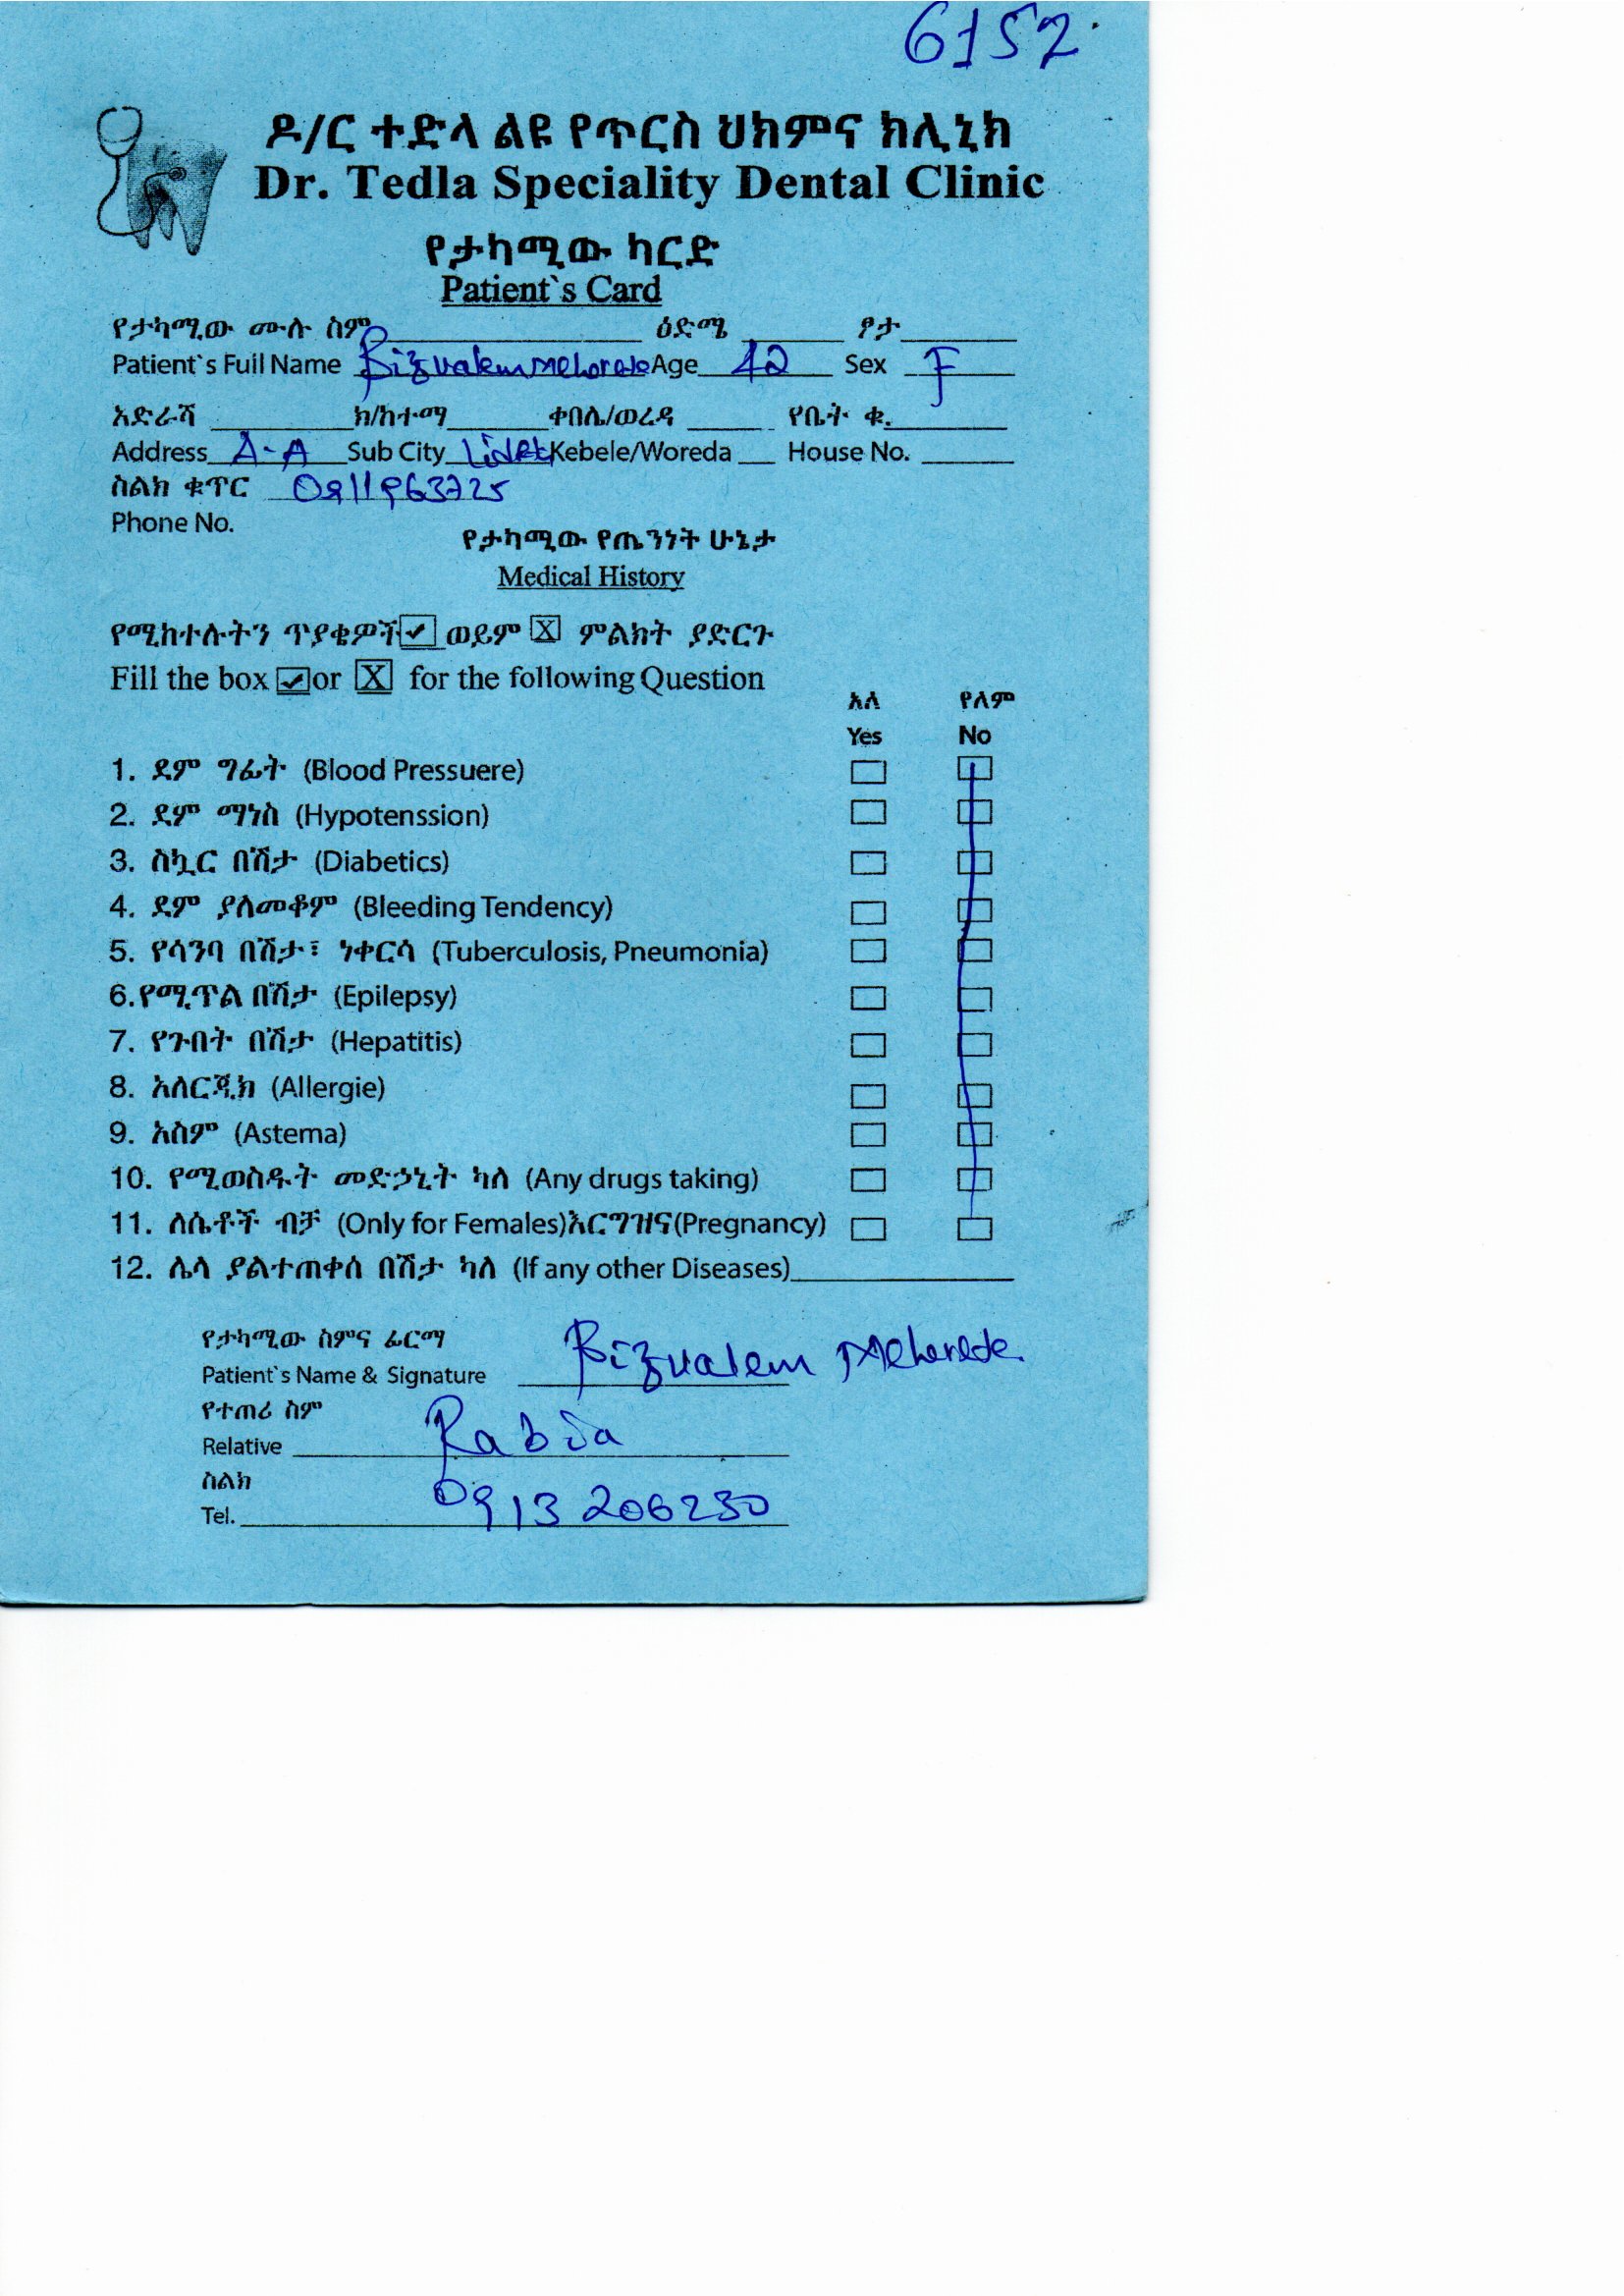 6152
ዶ/ር ተድላ ልዩ የጥርስ ህክምና ክሊኒክ
Dr. Tedla Speciality Dental Clinic
የታካሚው ካርድ
Patient`s Card
የታካሚው ሙሉ ስም ዕድሜ ፆታ
Patient`s Full Name Bizualem Age 42 Sex F
አድራሻ ክ/ከተማ ቀበሌ/ወረዳ የቤት ቁ.
Address A-A Sub City Kebele/Woreda House No.
ስልክ ቁጥር 0911963725
Phone No.
የታካሚው የጤንነት ሁኔታ
Medical History
የሚከተሉትን ጥያቄዎች ✓ ወይም X ምልክት ያድርጉ
Fill the box ✓ or X for the following Question
አለ የለም
Yes No
1. ደም ግፊት (Blood Pressuere)
2. ደም ማነስ (Hypotenssion)
3. ስኳር በሽታ (Diabetics)
4. ደም ያለመቆም (Bleeding Tendency)
5. የሳንባ በሽታ፣ ነቀርሳ (Tuberculosis, Pneumonia)
6.የሚጥል በሽታ (Epilepsy)
7. የጉበት በሽታ (Hepatitis)
8. አለርጂክ (Allergie)
9. አስም (Astema)
10. የሚወስዱት መድኃኒት ካለ (Any drugs taking)
11. ለሴቶች ብቻ (Only for Females)እርግዝና(Pregnancy)
12. ሌላ ያልተጠቀሰ በሽታ ካለ (If any other Diseases)
የታካሚው ስምና ፊርማ
Patient`s Name & Signature Bizualem
የተጠሪ ስም
Relative Rabia
ስልክ
Tel. 0913 206230